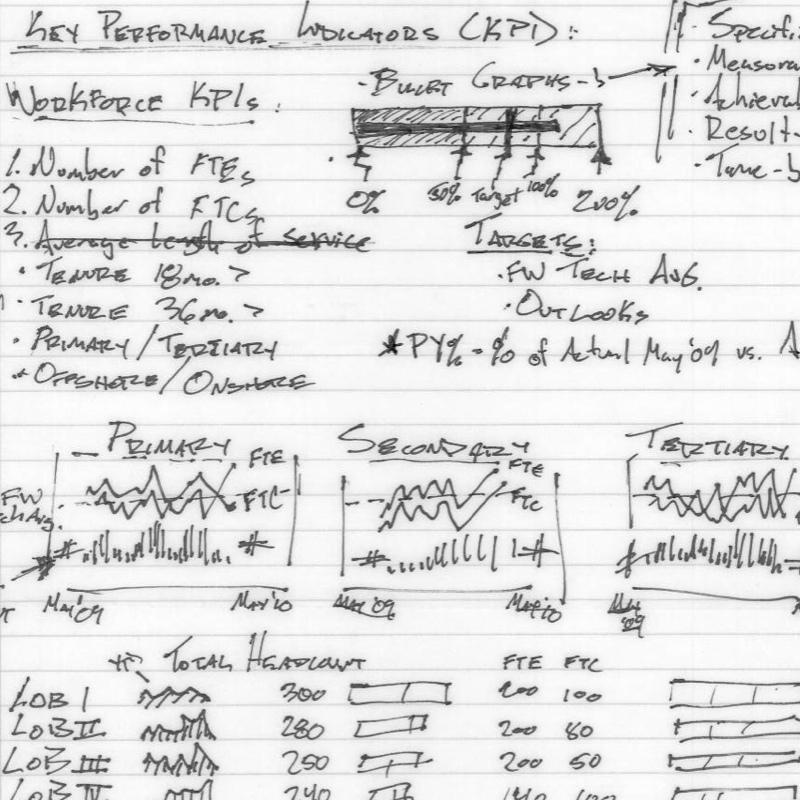 KEY PERFORMANCE INDICATORS (KPI):
· Specifi
· Measura
· Achieva
· Result-
· Time-b
- BULLET GRAPHS -
WORKFORCE KPIs:
0% 50% Target 100% 200%
1. Number of FTEs
2. Number of FTCs
3. Average Length of service
· TENURE 18mo. >
· TENURE 36mo. >
· PRIMARY/TERTIARY
· OFFSHORE/ONSHORE
TARGETS:
· FW TECH AVG.
· OUTLOOKS
* PY% - % of Actual May '09 vs. A
PRIMARY
FTE
FTC
FW
ch Avg.
# #
May '09 May '10
SECONDARY
FTE
FTC
# #
May '09 May '10
TERTIARY
#
May '09
TOTAL HEADCOUNT FTE FTC
LOB I 300 200 100
LOB II 280 200 80
LOB III 250 200 50
LOB IV 240 140 100